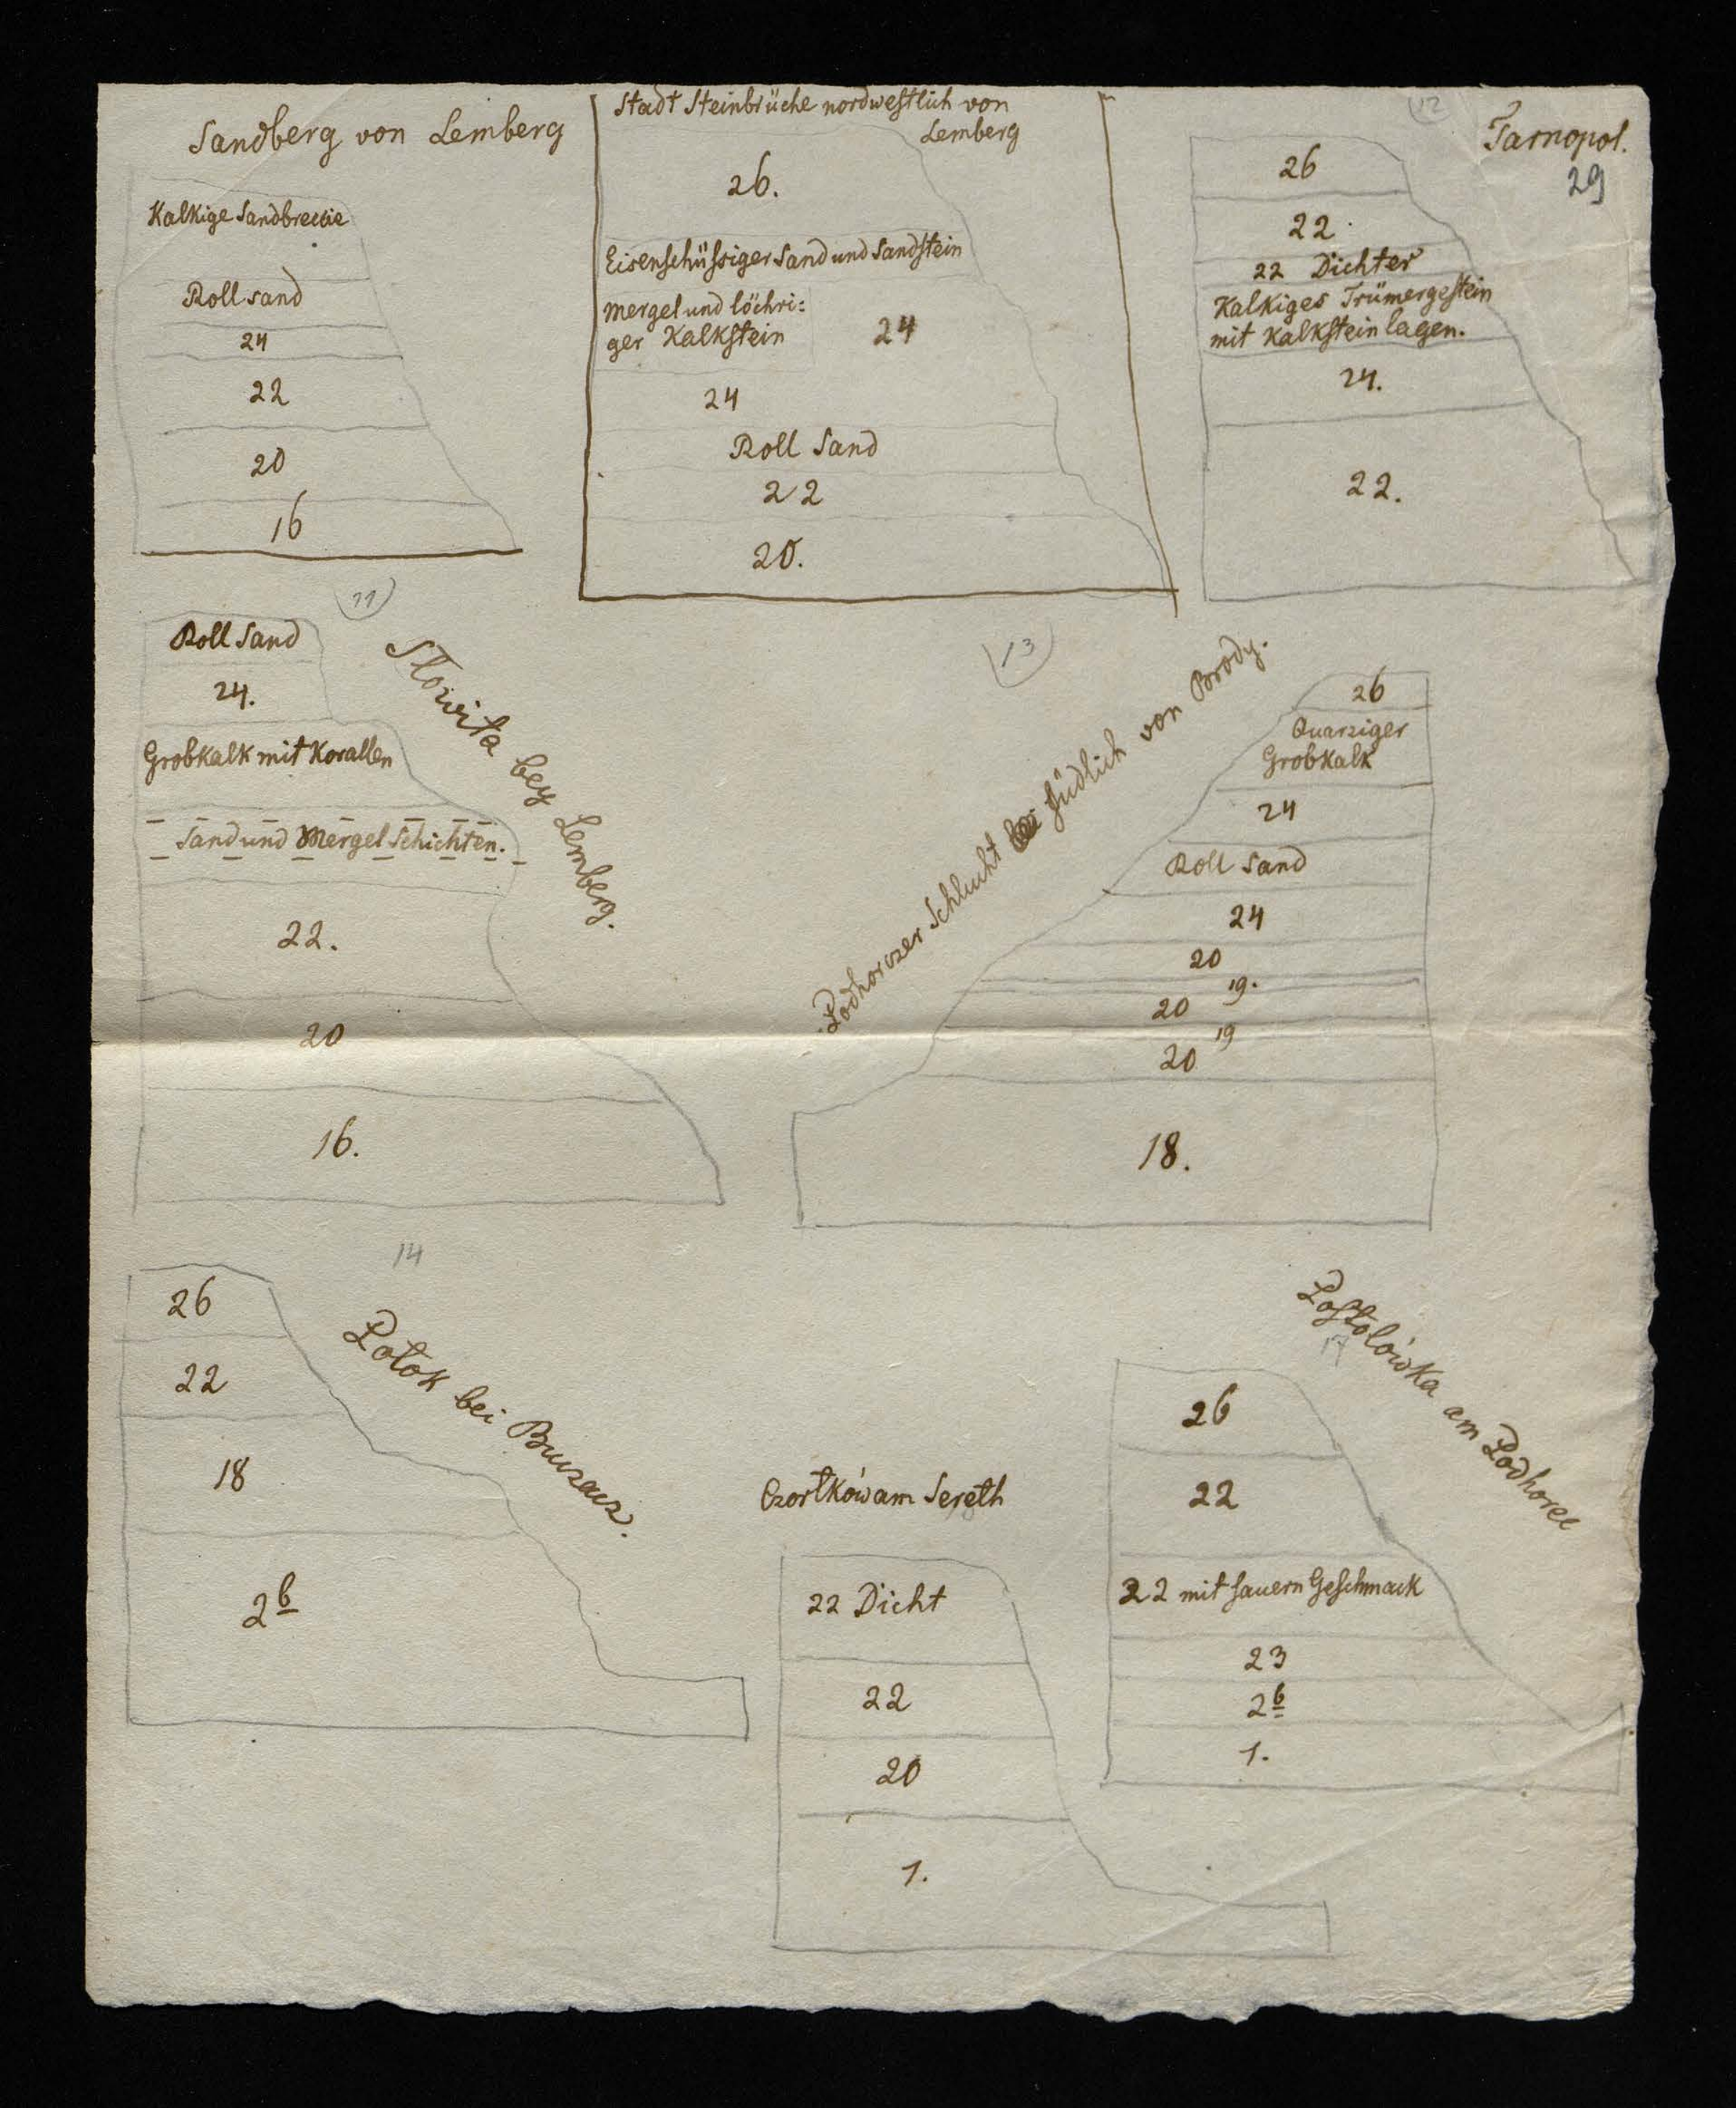 Sandberg von Lemberg
Kalkige Sandbreccie
Rollsand
24
22
20
16
Stadt Steinbrüche nordwestlich von
Lemberg
26.
Eisenschüssiger Sand und Sandstein
Mergel und löchri:
ger Kalkstein
24
24
Roll Sand
22
20.
12
Tarnopol.
29
26
22.
22 Dichter
Kalkiges Trümergestein
mit Kalkstein lagen.
24.
22.
11
Slowita bey Lemberg.
Roll Sand
24.
Grobkalk mit Korallen
Sand und Mergel Schichten.
22.
20
16.
13
Podhorczer Schlucht südlich von Brody.
26
Quarziger
Grobkalk
24
Roll Sand
24
20
19.
20
19
20
18.
14
Potok bei Buczacz.
26
22
18
2b
Czortków am Sereth
22 Dicht
22
20
1.
Postolówka am Podhorce
17
26
22
22 mit sauern Geschmack
23
2b
1.